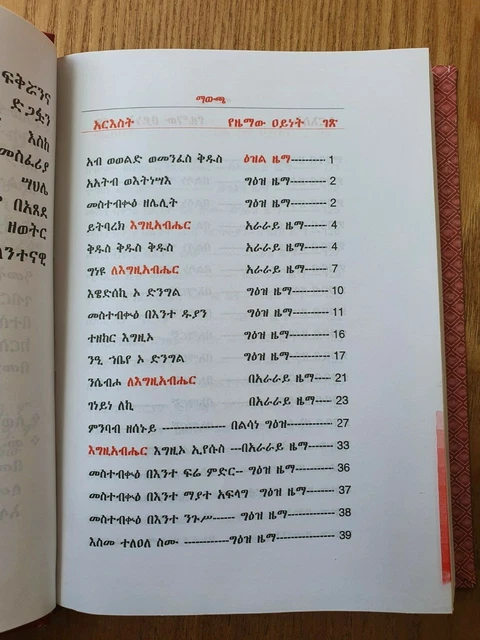 ፍቅሯንና
ድጋፏን
እስከ
መስፈሪያ
ሣህሌ
በአጸደ
ዘወትር
ማውጫ
አርእስት የዜማው ዐይነት ገጽ
አብ ወወልድ ወመንፈስ ቅዱስ ዕዝል ዜማ---------- 1
አአትብ ወእትነሣእ ግዕዝ ዜማ---------- 2
መስተብቍዕ ዘሌሊት ግዕዝ ዜማ---------- 2
ይትባረክ እግዚአብሔር አራራይ ዜማ------- 4
ቅዱስ ቅዱስ ቅዱስ አራራይ ዜማ------- 4
ግነዩ ለእግዚአብሔር አራራይ ዜማ------- 7
እዌድሰኪ ኦ ድንግል ግዕዝ ዜማ--------- 10
መስተብቍዕ በእንተ ዱያን ግዕዝ ዜማ--------- 11
ተዘከር እግዚኦ ግዕዝ ዜማ--------- 16
ንዒ ኀቤየ ኦ ድንግል ግዕዝ ዜማ--------- 17
ንሴብሖ ለእግዚአብሔር በአራራይ ዜማ----- 21
ገነይነ ለኪ በአራራይ ዜማ----- 23
ምንባብ ዘሰኑይ ------------------ በልሳነ ግዕዝ--------- 27
እግዚአብሔር እግዚኦ ኢየሱስ ---በአራራይ ዜማ------- 33
መስተብቍዕ በእንተ ፍሬ ምድር-- ግዕዝ ዜማ---------- 36
መስተብቍዕ በእንተ ማያተ አፍላግ ግዕዝ ዜማ-------- 37
መስተብቍዕ በእንተ ንጉሥ------ ግዕዝ ዜማ------------- 38
እስመ ተለዐለ ስሙ ------------ግዕዝ ዜማ---------------- 39